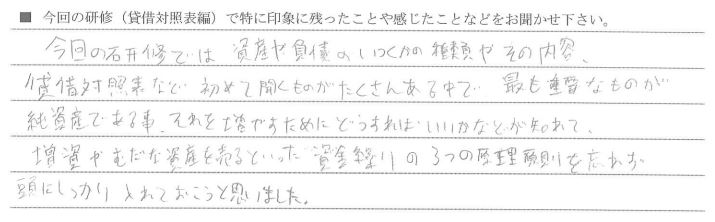 ■ 今回の研修（貸借対照表編）で特に印象に残ったことや感じたことなどをお聞かせ下さい。
今回の研修では 資産や負債のいくつかの種類やその内容、
貸借対照表など 初めて聞くものがたくさんある中で 最も重要なものが
純資産である事、それを増やすためにどうすればいいかなどが知れて、
増資やむだな資産を売るといった 資金繰りの3つの原理原則を忘れず
頭にしっかり入れておこうと思いました。